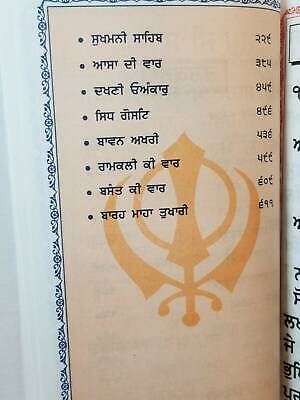 ਸੁਖਮਨੀ ਸਾਹਿਬ ੨੨੯
ਆਸਾ ਦੀ ਵਾਰ ੩੮੫
ਦਖਣੀ ਓਅੰਕਾਰੁ ੪੫੯
ਸਿਧ ਗੋਸਟਿ ੪੯੬
ਬਾਵਨ ਅਖਰੀ ੫੩੬
ਰਾਮਕਲੀ ਕੀ ਵਾਰ ੫੯੯
ਬਸੰਤ ਕੀ ਵਾਰ ੬੦੯
ਬਾਰਹ ਮਾਹਾ ਤੁਖਾਰੀ ੬੧੧